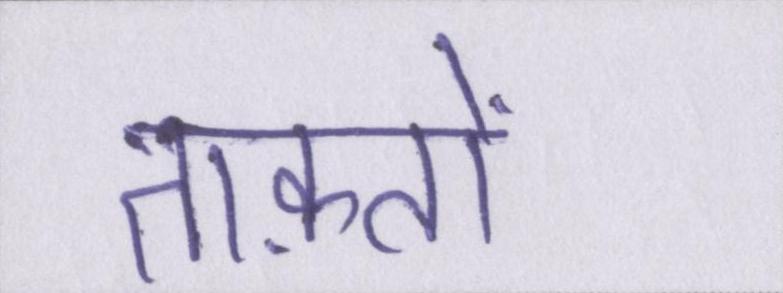 ताक़तों